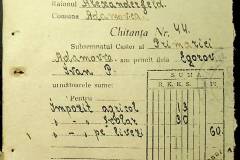 Raionul Alexanderfeld.
Comuna Adamovca
Chitanța Nr. 44.
Subsemnatul Casier al Primariei
Adamovca am primit dela Egorov
Ivan P.
următoarele sume:
SUMA
Pentru R. K. R. K.
Impozit agricol 13
" " școlar 30
" " pe livezi 60.